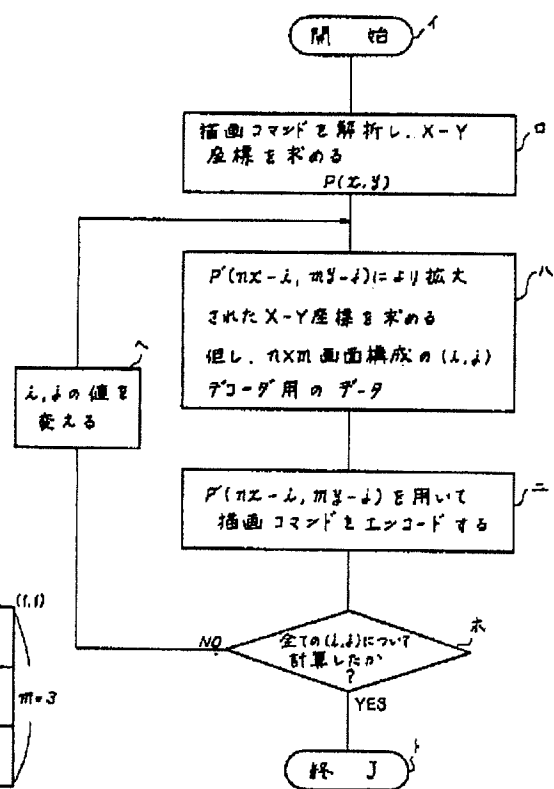 開始
イ
描画コマンドを解析し、X-Y
座標を求める
P(x,y)
ロ
P'(nx-i, my-j)により拡大
されたX-Y座標を求める
但し、n×m画面構成の(i,j)
デコーダ用のデータ
ハ
i,jの値を
変える
ヘ
P'(nx-i, my-j)を用いて
描画コマンドをエンコードする
ニ
全ての(i,j)について
計算したか
?
ホ
NO
YES
終了
ト
(1,1)
m=3